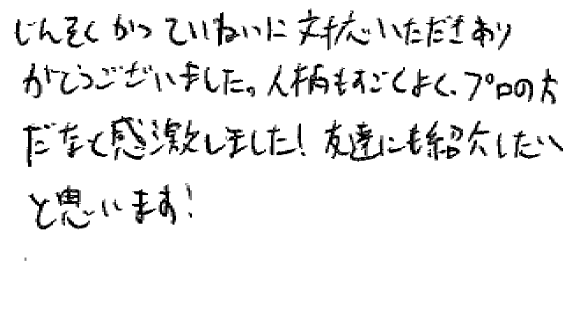 じんそく かつ ていねいに 対応いただきあり
がとうございました。人柄もすごくよく、プロの方
だなと感激しました！友達にも紹介したい
と思います！